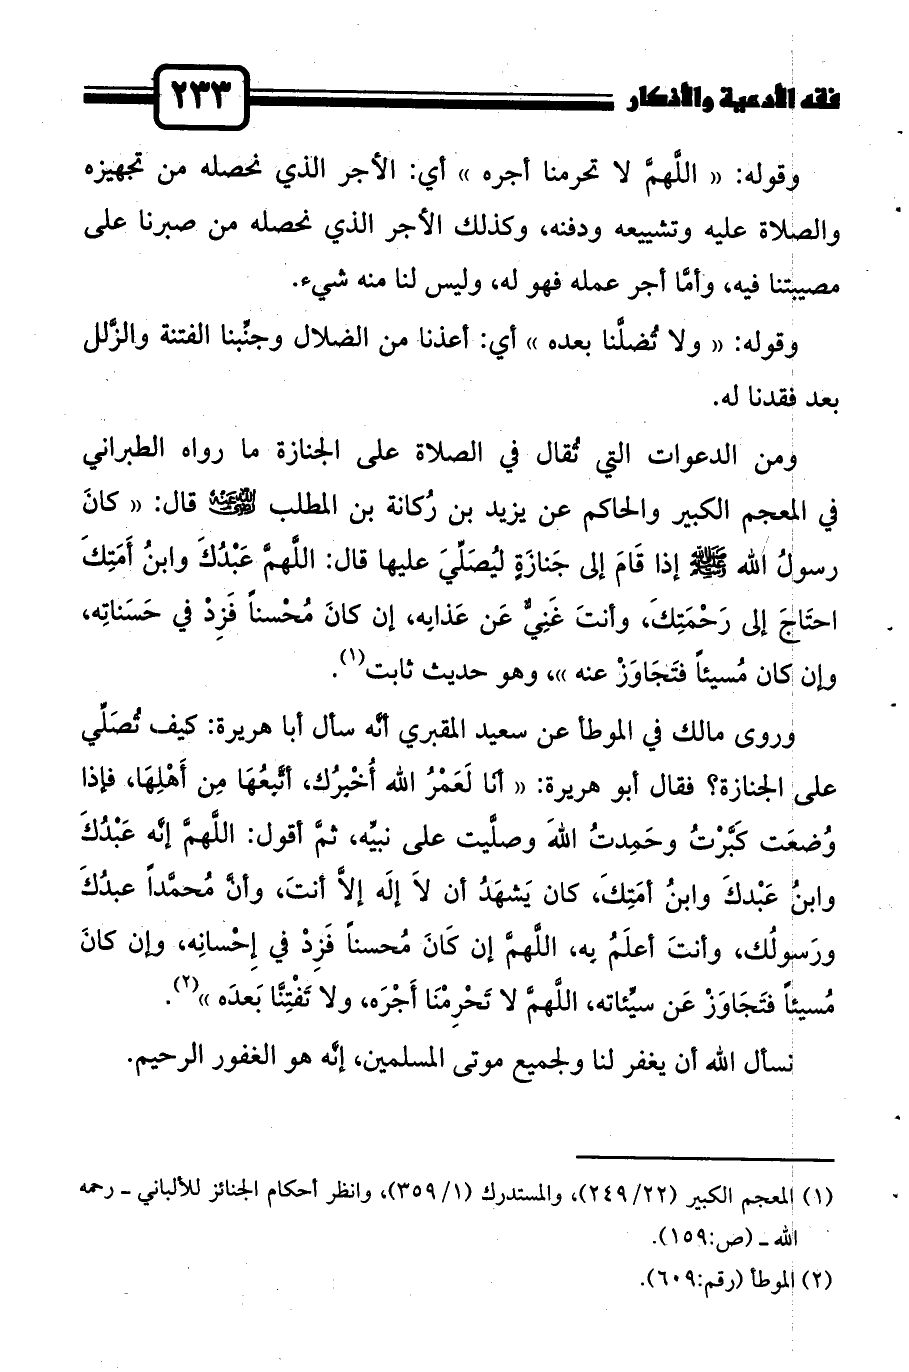 فقه الأدعية والأذكار
٢٣٣
وقوله: « اللَّهمَّ لا تحرمنا أجره » أي: الأجر الذي نحصله من تجهيزه
والصلاة عليه وتشييعه ودفنه، وكذلك الأجر الذي نحصله من صبرنا على
مصيبتنا فيه، وأمَّا أجر عمله فهو له، وليس لنا منه شيء.
وقوله: « ولا تُضلَّنا بعده » أي: أعذنا من الضلال وجنِّبنا الفتنة والزَّلل
بعد فقدنا له.
ومن الدعوات التي تُقال في الصلاة على الجنازة ما رواه الطبراني
في المعجم الكبير والحاكم عن يزيد بن رُكانة بن المطلب ﷺ قال: « كانَ
رسولُ الله ﷺ إذا قَامَ إلى جَنازَةٍ ليُصَلِّيَ عليها قال: اللَّهمَّ عَبْدُكَ وابنُ أَمَتِكَ
احتَاجَ إلى رَحْمَتِكَ، وأنتَ غَنِيٌّ عَن عَذابِه، إن كانَ مُحْسناً فَزِدْ في حَسَناتِه،
وإن كان مُسيئاً فتَجَاوَزْ عنه »، وهو حديث ثابت(١).
وروى مالك في الموطأ عن سعيد المقبري أنَّه سأل أبا هريرة: كيف تُصَلِّي
على الجنازة؟ فقال أبو هريرة: « أنَا لَعَمْرُ الله أُخْبِرُك، أتَّبعُهَا مِن أَهْلِهَا، فإذا
وُضعَت كبَّرْتُ وحَمِدتُ اللهَ وصلَّيت على نبيِّه، ثمَّ أقول: اللَّهمَّ إنَّه عَبْدُكَ
وابنُ عَبْدكَ وابنُ أمَتِكَ، كان يَشهَدُ أن لاَ إلَه إلاَّ أنتَ، وأنَّ مُحمَّداً عبدُكَ
ورَسولُك، وأنتَ أعلَمُ بِه، اللَّهمَّ إن كَانَ مُحسناً فَزِدْ في إحْسانِه، وإن كانَ
مُسيئاً فتَجَاوَزْ عَن سيِّئاته، اللَّهمَّ لا تَحْرِمْنَا أَجْرَه، ولا تَفْتِنَّا بَعدَه »(٢).
نسأل الله أن يغفر لنا ولجميع موتى المسلمين، إنَّه هو الغفور الرحيم.
(١) المعجم الكبير (٢٤٩/٢٢)، والمستدرك (٣٥٩/١)، وانظر أحكام الجنائز للألباني ـ رحمه
الله ـ (ص:١٥٩).
(٢) الموطأ (رقم:٦٠٩).